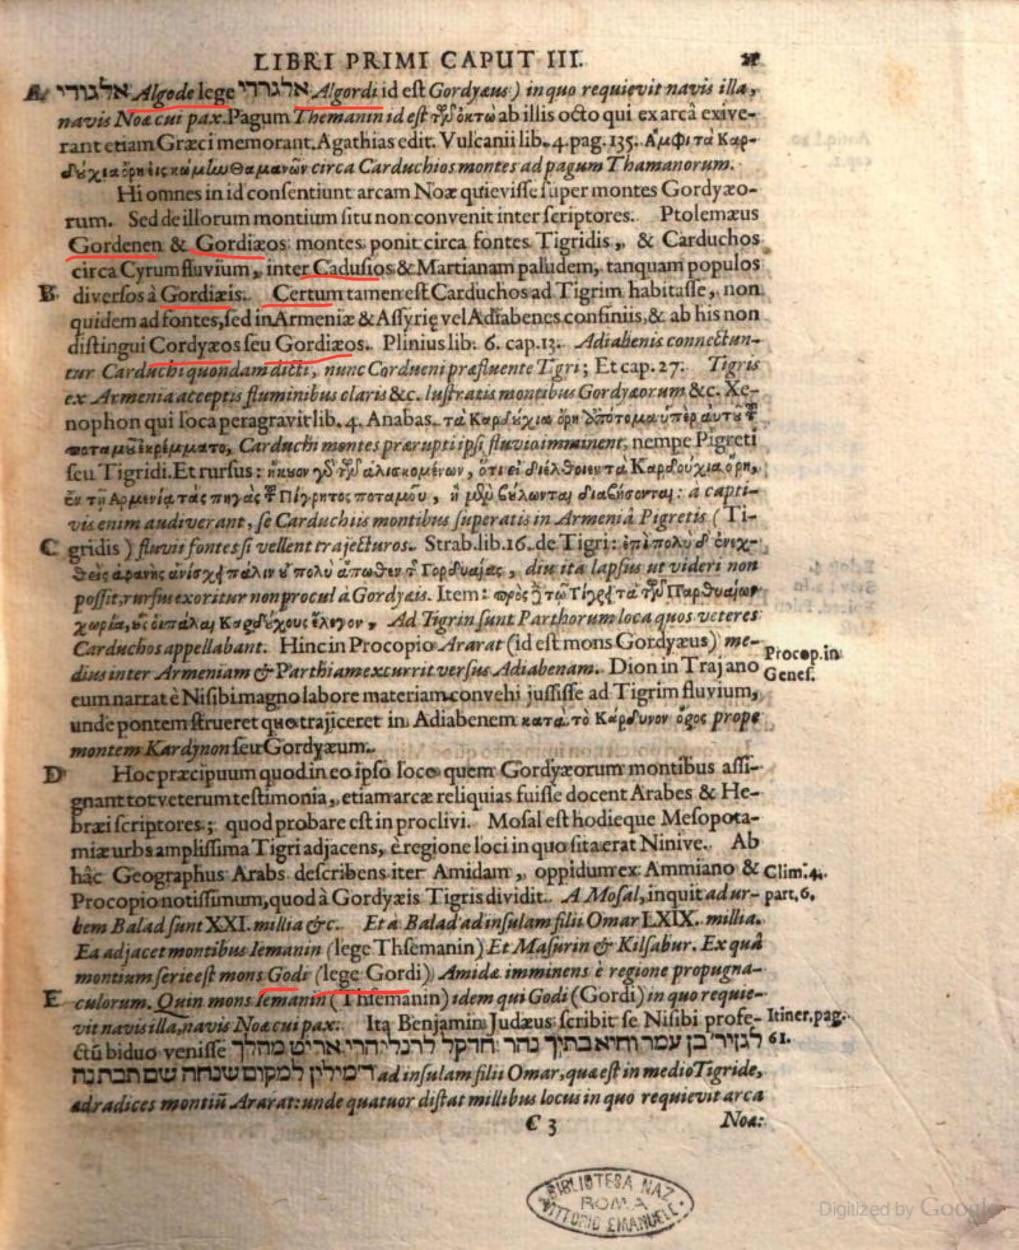 LIBRI PRIMI CAPUT III. 21
A אלגודי Algode lege אלגרדי Algordi id est Gordyæus) in quo requievit navis illa,
navis Noæ cui pax. Pagum Themanin id est τῶν ὀκτὼ ab illis octo qui ex arcâ exive-
rant etiam Græci memorant. Agathias edit. Vulcanii lib. 4. pag. 135. Ἀμφὶ τὰ Καρ-
δούχια ὄρη εἰς κώμην Θαμανῶν circa Carduchios montes ad pagum Thamanorum.
Hi omnes in id consentiunt arcam Noæ quievisse super montes Gordyæo-
rum. Sed de illorum montium situ non convenit inter scriptores. Ptolemæus
Gordenen & Gordiæos montes ponit circa fontes Tigridis, & Carduchos
circa Cyrum fluvium, inter Cadusios & Martianam paludem, tanquam populos
B diversos à Gordiæis. Certum tamen est Carduchos ad Tigrim habitasse, non
quidem ad fontes, sed in Armeniæ & Assyrię vel Adiabenes confiniis, & ab his non
distingui Cordyæos seu Gordiæos. Plinius lib. 6. cap. 13. Adiabenis connectun-
tur Carduchi quondam dicti, nunc Cordueni præfluente Tigri; Et cap. 27. Tigris
ex Armenia acceptis fluminibus claris &c. lustratis montibus Gordyæorum &c. Xe-
nophon qui loca peragravit lib. 4. Anabas. τὰ Καρδούχια ὄρη ἀπότομα ὑπὲρ αὐτοῦ τοῦ
ποταμοῦ ἐκρέμματο, Carduchi montes prærupti ipsi fluvio imminent, nempe Pigreti
seu Tigridi. Et rursus: ἤκουον γὰρ τῶν ἁλισκομένων, ὅτι εἰ διέλθοιεν τὰ Καρδούχια ὄρη,
ἐν τῇ Ἀρμενίᾳ τὰς πηγὰς τοῦ Πίγρητος ποταμοῦ, ἢ μὲν βούλωνται διαβήσονται: à capti-
vis enim audiverant, se Carduchiis montibus superatis in Armeniâ Pigretis (Ti-
C gridis) fluvii fontes si vellent trajecturos. Strab. lib. 16. de Tigri: ἐπὶ πολὺ δ' ἐνεχ-
θεὶς ἀφανὴς ἀνίσχει πάλιν οὐ πολὺ ἄπωθεν τῆς Γορδυαίας, diu ita lapsus ut videri non
possit, rursus exoritur non procul à Gordyais. Item: πρὸς δὲ τῷ Τίγρει τὰ τῶν Παρθυαίων
χωρία, οὓς οἱ πάλαι Καρδούχους ἔλεγον, Ad Tigrin sunt Parthorum loca quos veteres
Carduchos appellabant. Hinc in Procopio Ararat (id est mons Gordyæus) me-
dius inter Armeniam & Parthiam excurrit versus Adiabenam. Dion in Trajano
Procop. in
Genes.
eum narrat è Nisibi magno labore materiam convehi jussisse ad Tigrim fluvium,
unde pontem strueret quo trajiceret in Adiabenem κατὰ τὸ Κάρδυνον ὄρος prope
montem Kardynon seu Gordyæum.
D Hoc præcipuum quod in eo ipso loco quem Gordyæorum montibus assi-
gnant tot veterum testimonia, etiam arcæ reliquias fuisse docent Arabes & He-
bræi scriptores; quod probare est in proclivi. Mosal est hodieque Mesopota-
miæ urbs amplissima Tigri adjacens, è regione loci in quo sita erat Ninive. Ab
hâc Geographus Arabs describens iter Amidam, oppidum ex Ammiano &
Procopio notissimum, quod à Gordyæis Tigris dividit. A Mosal, inquit ad ur-
Clim. 4.
part. 6.
bem Balad sunt XXI. millia &c. Et à Balad ad insulam filii Omar LXIX. millia.
Ea adjacet montibus Iemanin (lege Thsemanin) Et Masurin & Kilsabur. Ex quâ
montium serie est mons Godi (lege Gordi) Amidæ imminens è regione propugna-
E culorum. Quin mons Iemanin (Thsemanin) idem qui Godi (Gordi) in quo requie-
vit navis illa, navis Noæ cui pax. Ita Benjamin Judæus scribit se Nisibi profe-
Itiner. pag.
61.
ctū biduo venisse לגזיר׳ בן עמר והיא בתיך נהר חדקל לרגלי הרי אררט מהלך
ד׳ מילין למקום שנחה שם תבת נח ad insulam filii Omar, quæ est in medio Tigride,
ad radices montiū Ararat: unde quatuor distat millibus locus in quo requievit arca
C 3 Noæ:
BIBLIOTECA NAZ.
ROMA
VITTORIO EMANUELE
Digitized by Google